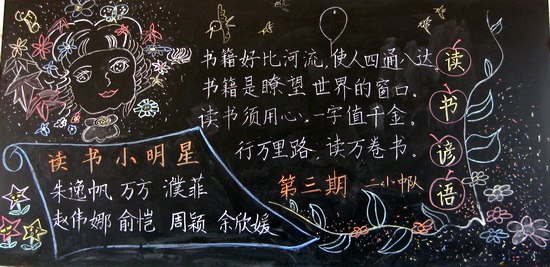 书籍好比河流,使人四通八达。
书籍是瞭望世界的窗口。
读书须用心,一字值千金。
行万里路,读万卷书。
读书谚语
第三期 二小中队
读书小明星
朱逸帆 万方 濮菲
赵伟娜 俞恺 周颖 余欣媛